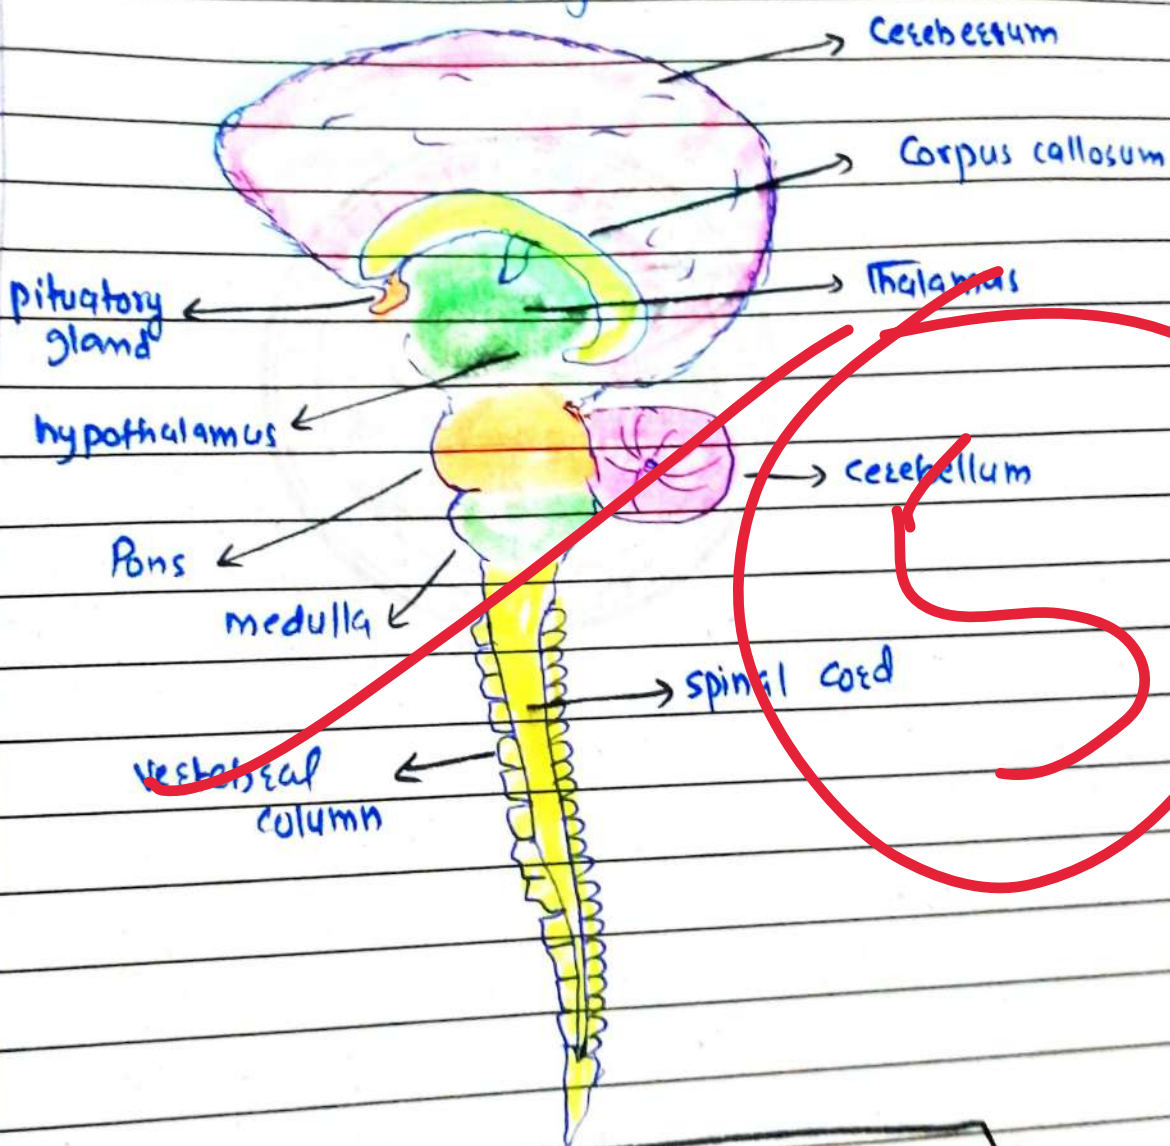 Cereberum
Corpus callosum
Thalamus
pituatory
gland
hypothalamus
cerebellum
Pons
medulla
spinal cord
Vertebral
column
5